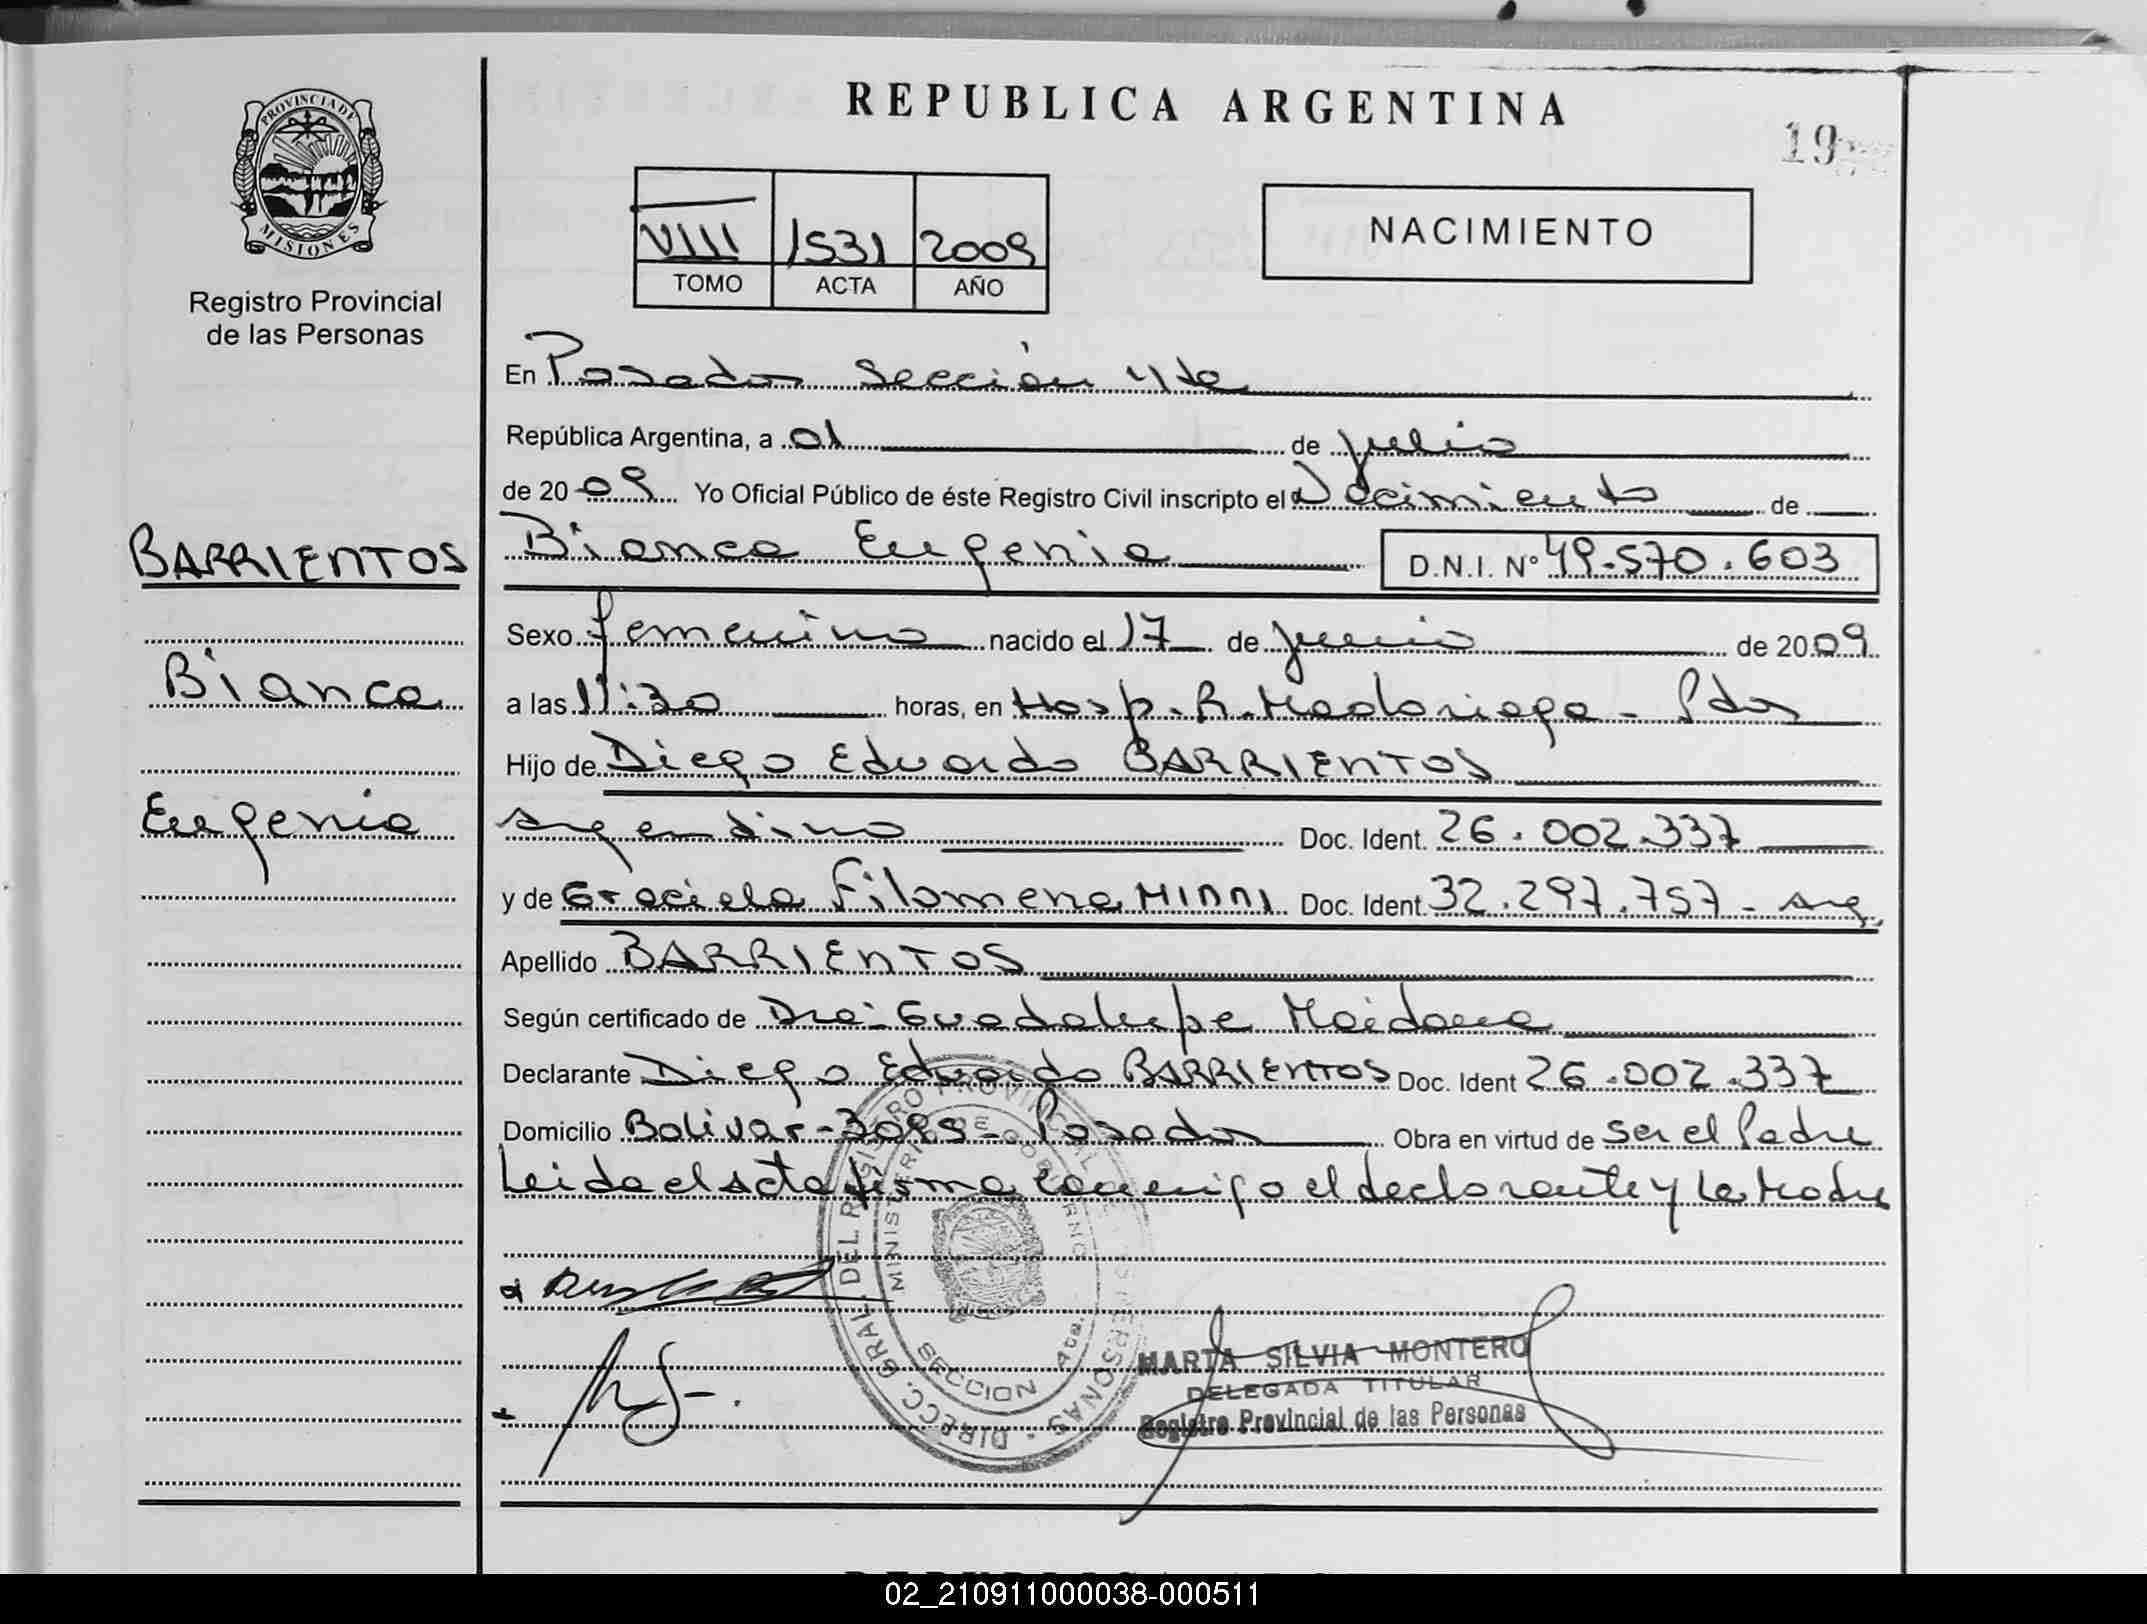 REPUBLICA ARGENTINA
19
PROVINCIA DE
MISIONES
Registro Provincial
de las Personas
VIII 1531 2009
TOMO ACTA AÑO
NACIMIENTO
En Posadas Sección 4ta
República Argentina, a 01 de julio
de 2009 Yo Oficial Público de éste Registro Civil inscripto el Nacimiento de
BARRIENTOS
Bianca
Eugenia
Bianca Eugenia D.N.I. Nº 49.570.603
Sexo femenino nacido el 17 de junio de 2009
a las 11:30 horas, en Hosp. R. Madariaga - Pdas
Hijo de Diego Eduardo BARRIENTOS
argentino Doc. Ident. 26.002.337
y de Graciela Filomena Doc. Ident. 32.297.757 - arg.
Apellido BARRIENTOS
Según certificado de Dra. Guadalupe Maidana
Declarante Diego Eduardo BARRIENTOS Doc. Ident 26.002.337
Domicilio Bolivar - Posadas Obra en virtud de ser el Padre
Leida el acta firma conmigo el declarante y la Madre
DIRECC. GRAL. DEL REGISTRO PROVINCIAL DE LAS PERSONAS
MINISTERIO DE GOBIERNO
SECCION 4ta.
MARTA SILVIA MONTERO
DELEGADA TITULAR
Registro Provincial de las Personas
02_210911000038-000511